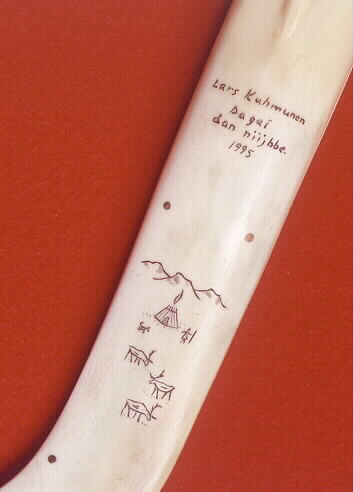 Lars Kuhmunen
Dagai
dan niijhbe.
1995